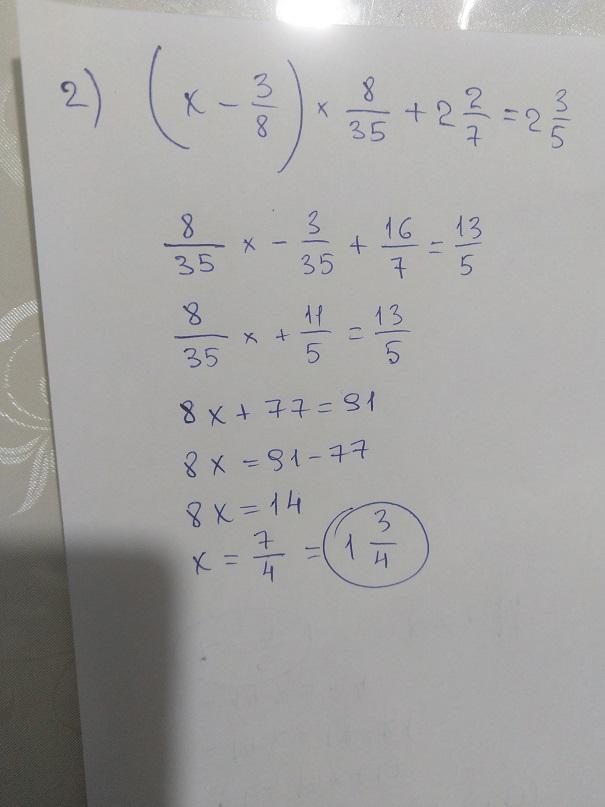 2) (x - 3/8) × 8/35 + 2 2/7 = 2 3/5
8/35 x - 3/35 + 16/7 = 13/5
8/35 x + 11/5 = 13/5
8x + 77 = 91
8x = 91 - 77
8x = 14
x = 7/4 = 1 3/4